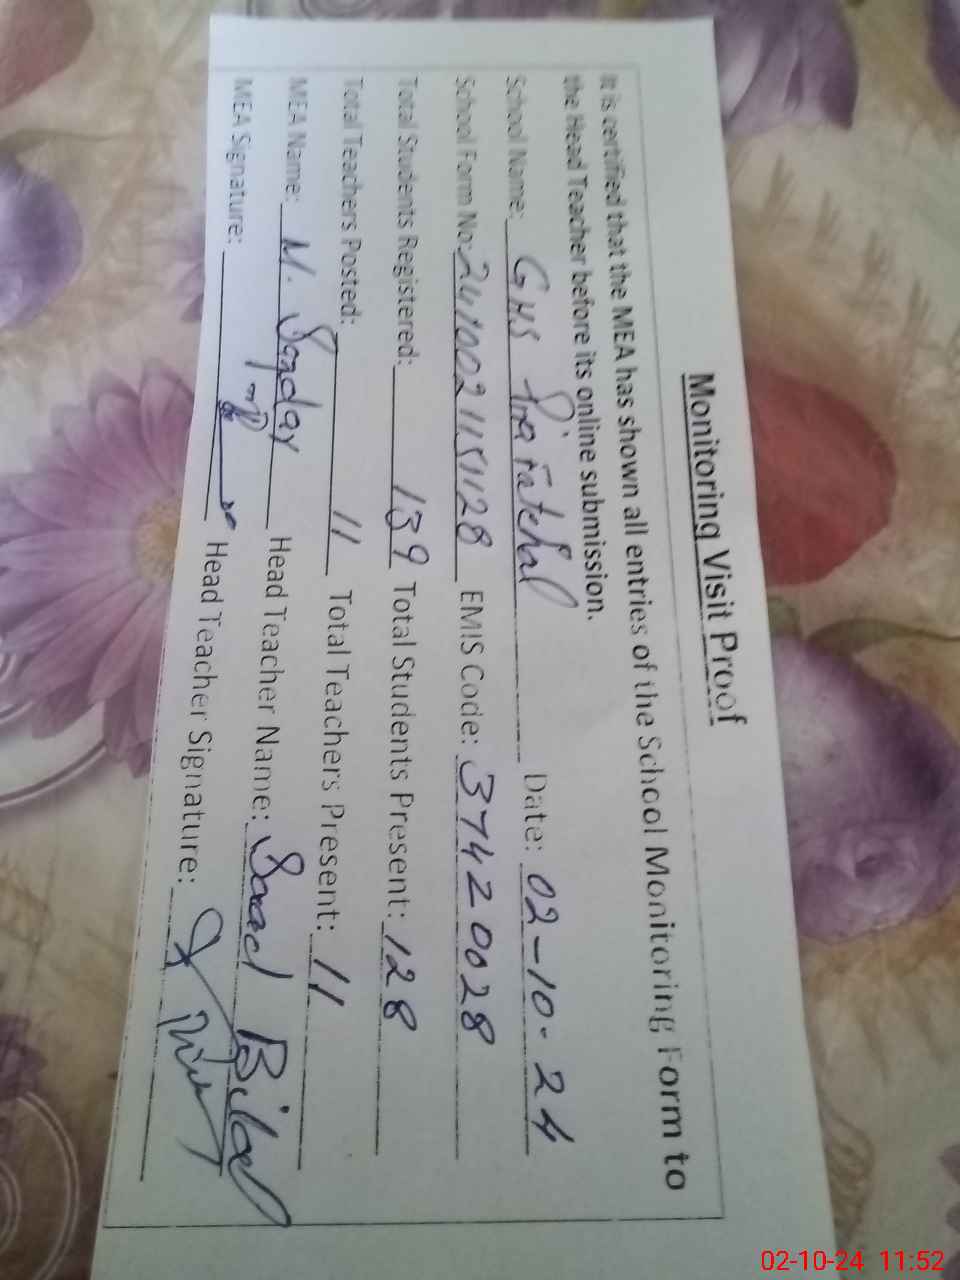 Monitoring Visit Proof
It is certified that the MEA has shown all entries of the School Monitoring Form to
the Head Teacher before its online submission.
School Name: GHS Date: 02-10-24
School Form No: EMIS Code: 37420028
Total Students Registered: 139 Total Students Present: 128
Total Teachers Posted: 11 Total Teachers Present: 11
MEA Name: M. Head Teacher Name: Saad Bilal
MEA Signature: Head Teacher Signature:
02-10-24 11:52